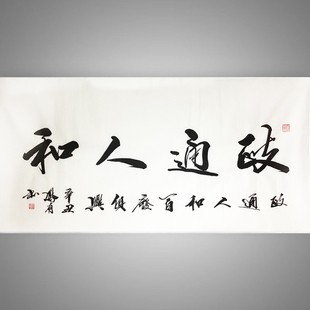 政通人和
政通人和百廢俱興
辛丑